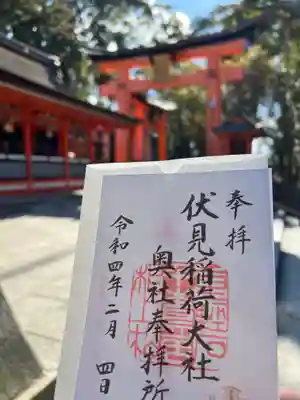 奉拝
伏見稲荷大社
奥社奉拝所
令和四年二月四日